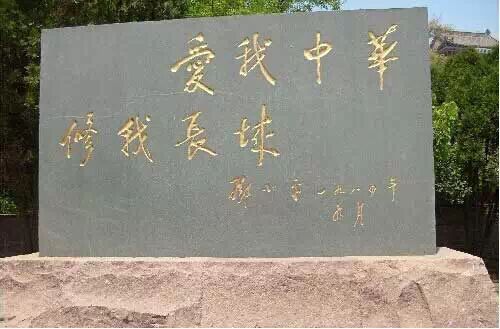 愛我中華
修我長城
邓小平一九八四年
九月